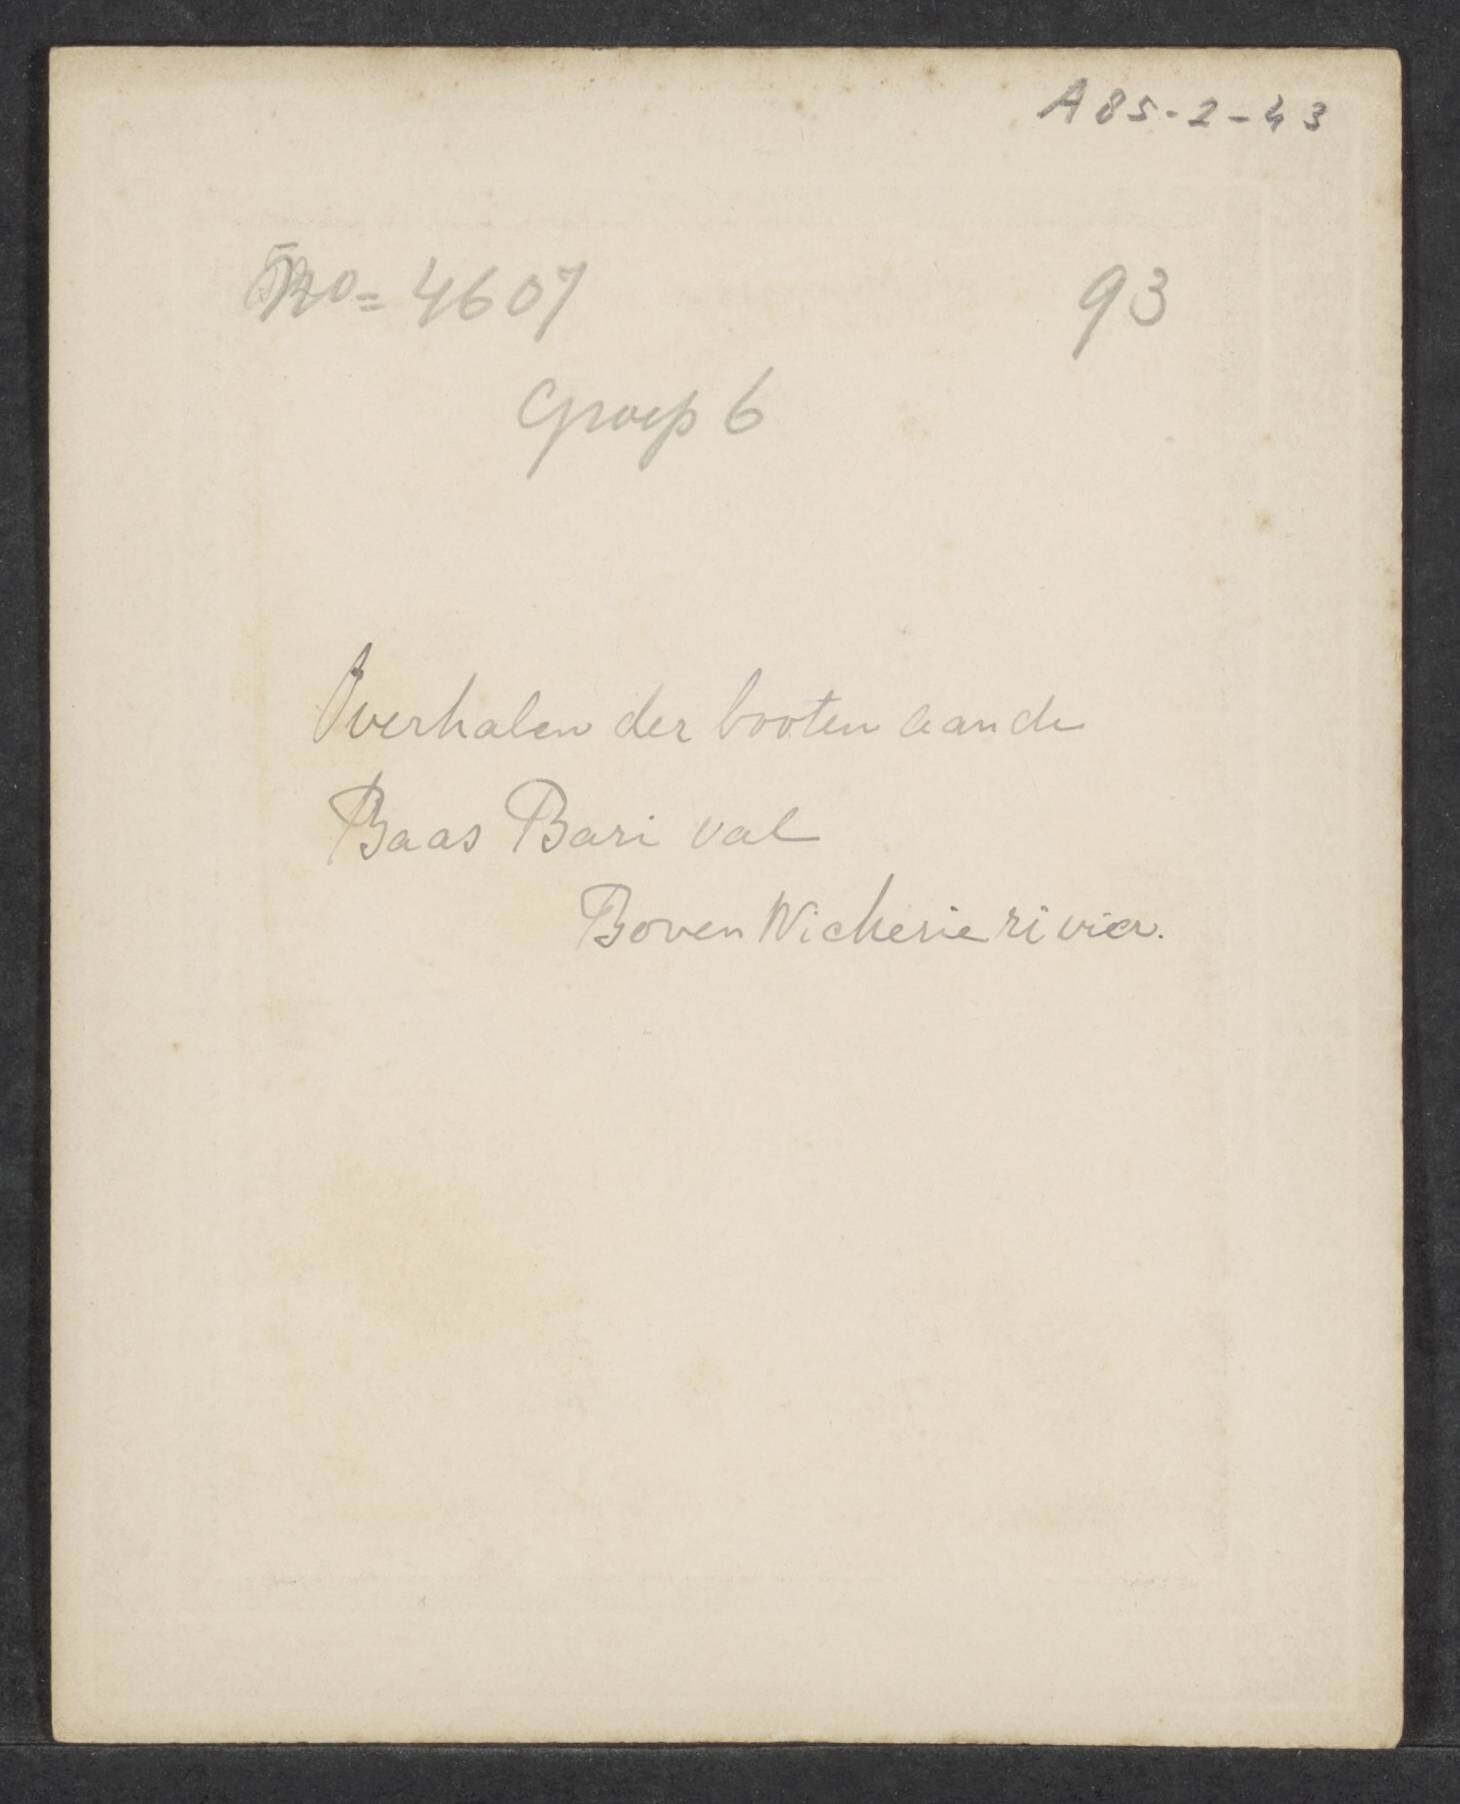 A85-2-43
No= 4607 93
Groep 6
Overhalen der booten aan de
Baas Bari val
Boven Nickerie rivier.